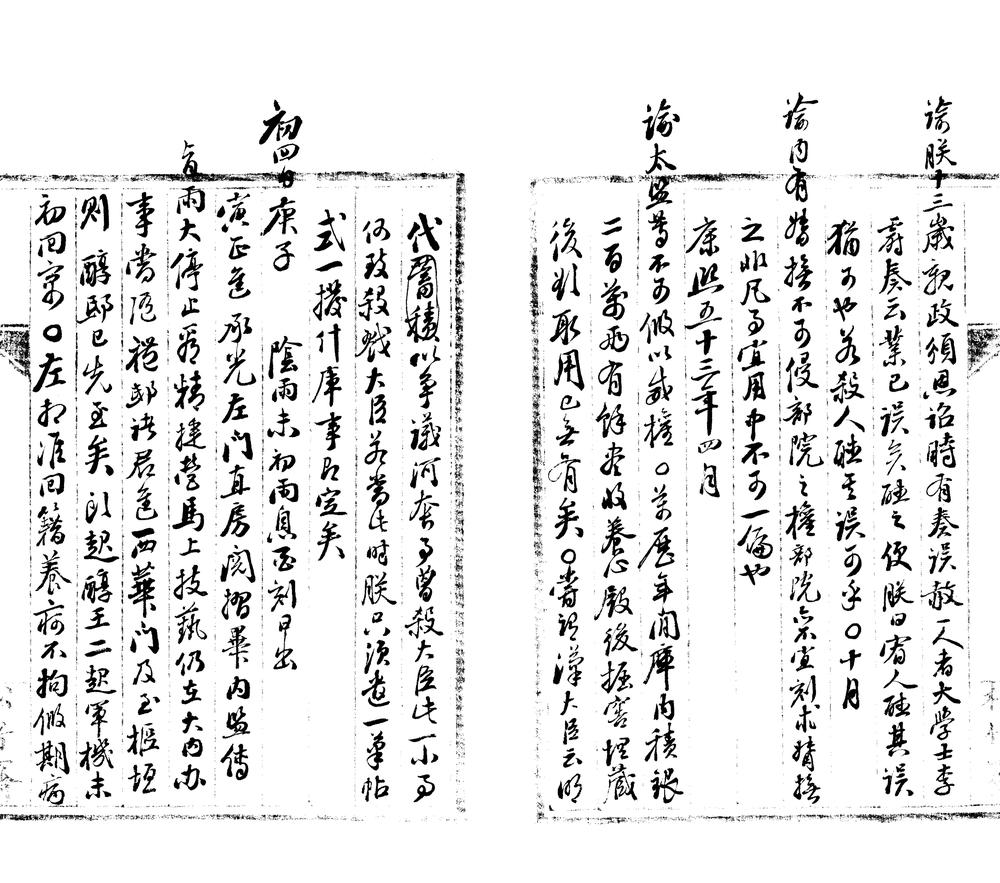 諭朕十三歲親政頒恩詔時有奏誤赦一人者大學士李
霨奏云業已誤矣之便朕曰宥人雖其誤
猶可也若殺人雖其誤可乎〇十月
諭內有督撫不可侵部院之權部院亦不宜刻求督撫
之非凡事宜用中不可一偏也
康熙五十三年四月
諭太監等不可假以威權〇萬歷年間庫內積銀
二百萬兩有餘盡收養心殿後掘窖埋藏
後取用已無有矣〇嘗謂漢大臣云明
代蓄積以爭議河套事曾殺大臣此一小事
何致殺戮大臣若當此時朕只須書一筆帖
式一撥什庫事即定矣
初四日庚子 陰雨未初雨息酉刻日出
寅正進承光左門直房閱摺畢內監傳
旨雨大停止看精捷營馬上技藝仍在大內办
事當隨禮邸諸君進西華門及至樞垣
則醇邸已先至矣頭起醇王二起軍機未
初回寓〇左相准回籍養病不拘假期病